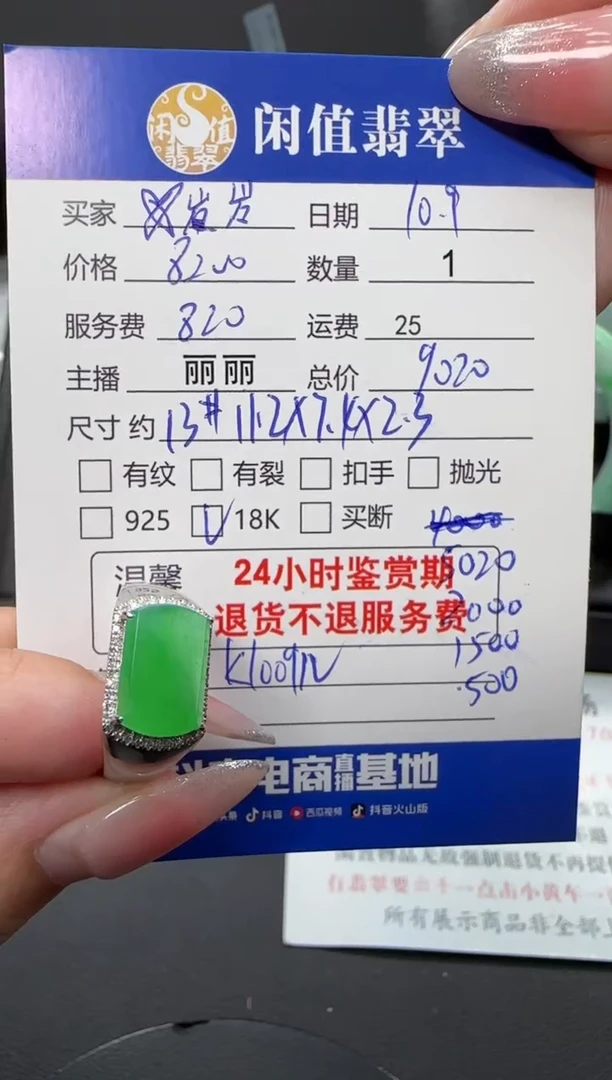 闲值翡翠
闲值翡翠
买家 发岁 日期 10.9
价格 8200 数量 1
服务费 820 运费 25
主播 丽丽 总价 9020
尺寸 约 13# 11.2X7.4X2.3
有纹 有裂 扣手 抛光
925 V 18K 买断 4000
温馨 24小时鉴赏期 5020
退货不退服务费 2000
1500
K10091N 500
电商直播基地
抖音 西瓜视频 抖音火山版
有翡翠要
所有展示商品非全部